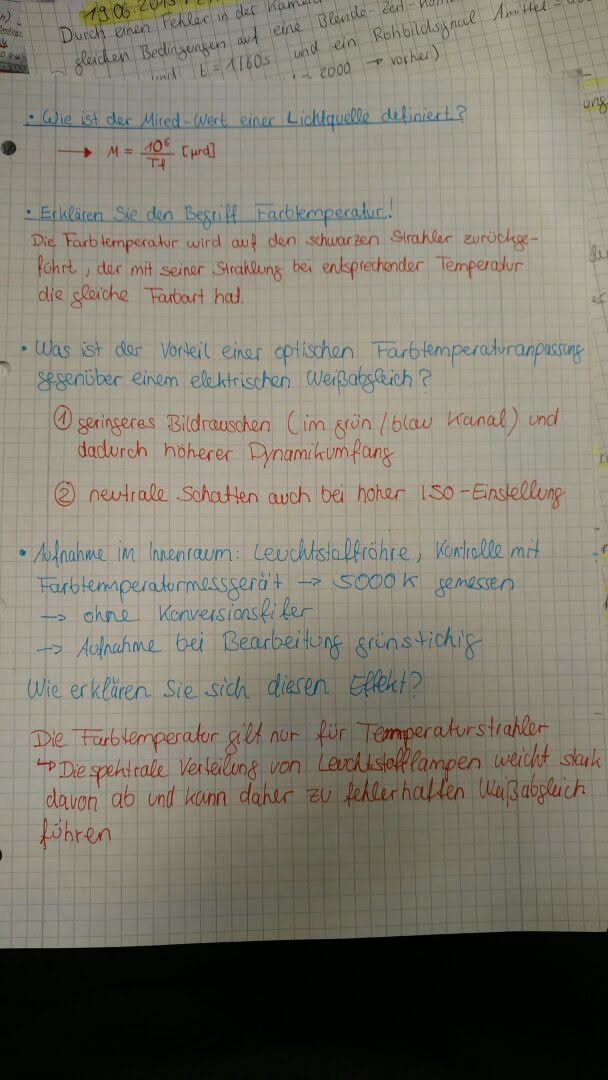 19.06.
Durch einen Fehler in der
gleichen Bedingungen auf eine Blende-Zeit-
und t = 1/60s und ein Rohbildsignal 1mittel =
2000 → vorher)
• Wie ist der Mired-Wert einer Lichtquelle definiert?
→ M = 10⁶ / Tf [µrd]
• Erklären Sie den Begriff Farbtemperatur!
Die Farbtemperatur wird auf den schwarzen Strahler zurückge-
führt, der mit seiner Strahlung bei entsprechender Temperatur
die gleiche Farbart hat.
• Was ist der Vorteil einer optischen Farbtemperaturanpassung
gegenüber einem elektrischen Weißabgleich?
① geringeres Bildrauschen (im grün/blau Kanal) und
dadurch höherer Dynamikumfang
② neutrale Schatten auch bei hoher ISO-Einstellung
• Aufnahme im Innenraum: Leuchtstoffröhre, Kontrolle mit
Farbtemperaturmessgerät → 5000K gemessen
→ ohne Konversionsfifer
→ Aufnahme bei Bearbeitung grünstichig
Wie erklären Sie sich diesen Effekt?
Die Farbtemperatur gilt nur für Temperaturstrahler
↳ Die spektrale Verteilung von Leuchtstofflampen weicht stark
davon ab und kann daher zu fehlerhaften Weißabgleich
führen